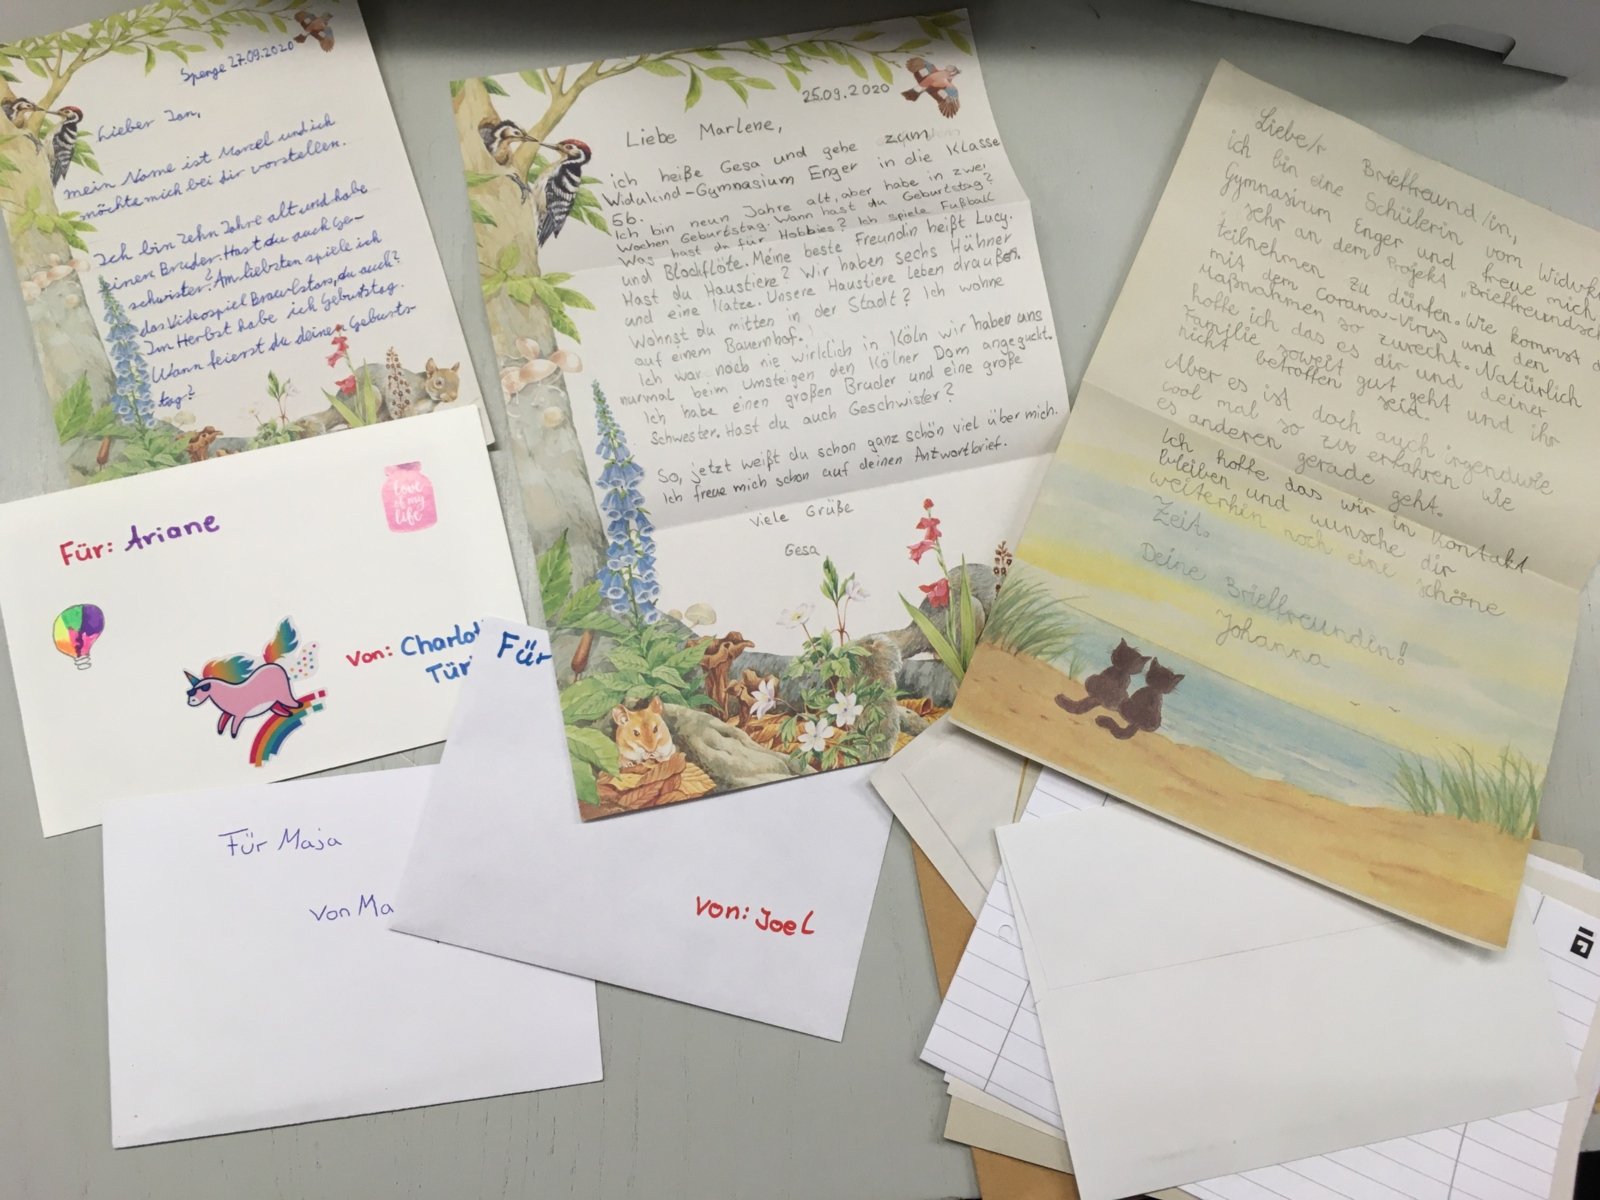 Spenge 27.09.2020
Lieber Jan,
mein Name ist Marcel und ich
möchte mich bei dir vorstellen.
Ich bin zehn Jahre alt und habe
einen Bruder. Hast du auch Ge-
schwister? Am liebsten spiele ich
das Videospiel Brawlstars, du auch?
Im Herbst habe ich Geburtstag.
Wann feierst du deinen Geburts-
tag?
25.09.2020
Liebe Marlene,
ich heiße Gesa und gehe zum
Widukind-Gymnasium Enger in die Klasse
5b.
Ich bin neun Jahre alt, aber habe in zwei
Wochen Geburtstag. Wann hast du Geburtstag?
Was hast du für Hobbies? Ich spiele Fußball
und Blockflöte. Meine beste Freundin heißt Lucy.
Hast du Haustiere? Wir haben sechs Hühner
und eine Katze. Unsere Haustiere leben draußen.
Wohnst du mitten in der Stadt? Ich wohne
auf einem Bauernhof.
Ich war noch nie wirklich in Köln wir haben uns
nurmal beim Umsteigen den Kölner Dom angeguckt.
Ich habe einen großen Bruder und eine große
Schwester. Hast du auch Geschwister?
So, jetzt weißt du schon ganz schön viel über mich.
Ich freue mich schon auf deinen Antwortbrief.
Viele Grüße
Gesa
Liebe/r Brieffreund/in,
ich bin eine Schülerin vom Widuki
Gymnasium Enger und freue mich
sehr an dem Projekt „Brieffreundsch
teilnehmen zu dürfen. Wie kommst d
mit dem Corona-Virus und den
Maßnahmen so zurecht. Natürlich
hoffe ich das es dir und deiner
Familie soweit gut geht und ihr
nicht betroffen seid.
Aber es ist doch auch irgendwie
cool mal so zu erfahren wie
es anderen gerade geht.
Ich hoffe das wir in Kontakt
bleiben und wünsche dir
weiterhin noch eine schöne
Zeit.
Deine Brieffreundin!
Johanna
Für: Ariane
love
of my
life
von: Charlot
Tür
Für
Für Maja
von Ma
von: Joel